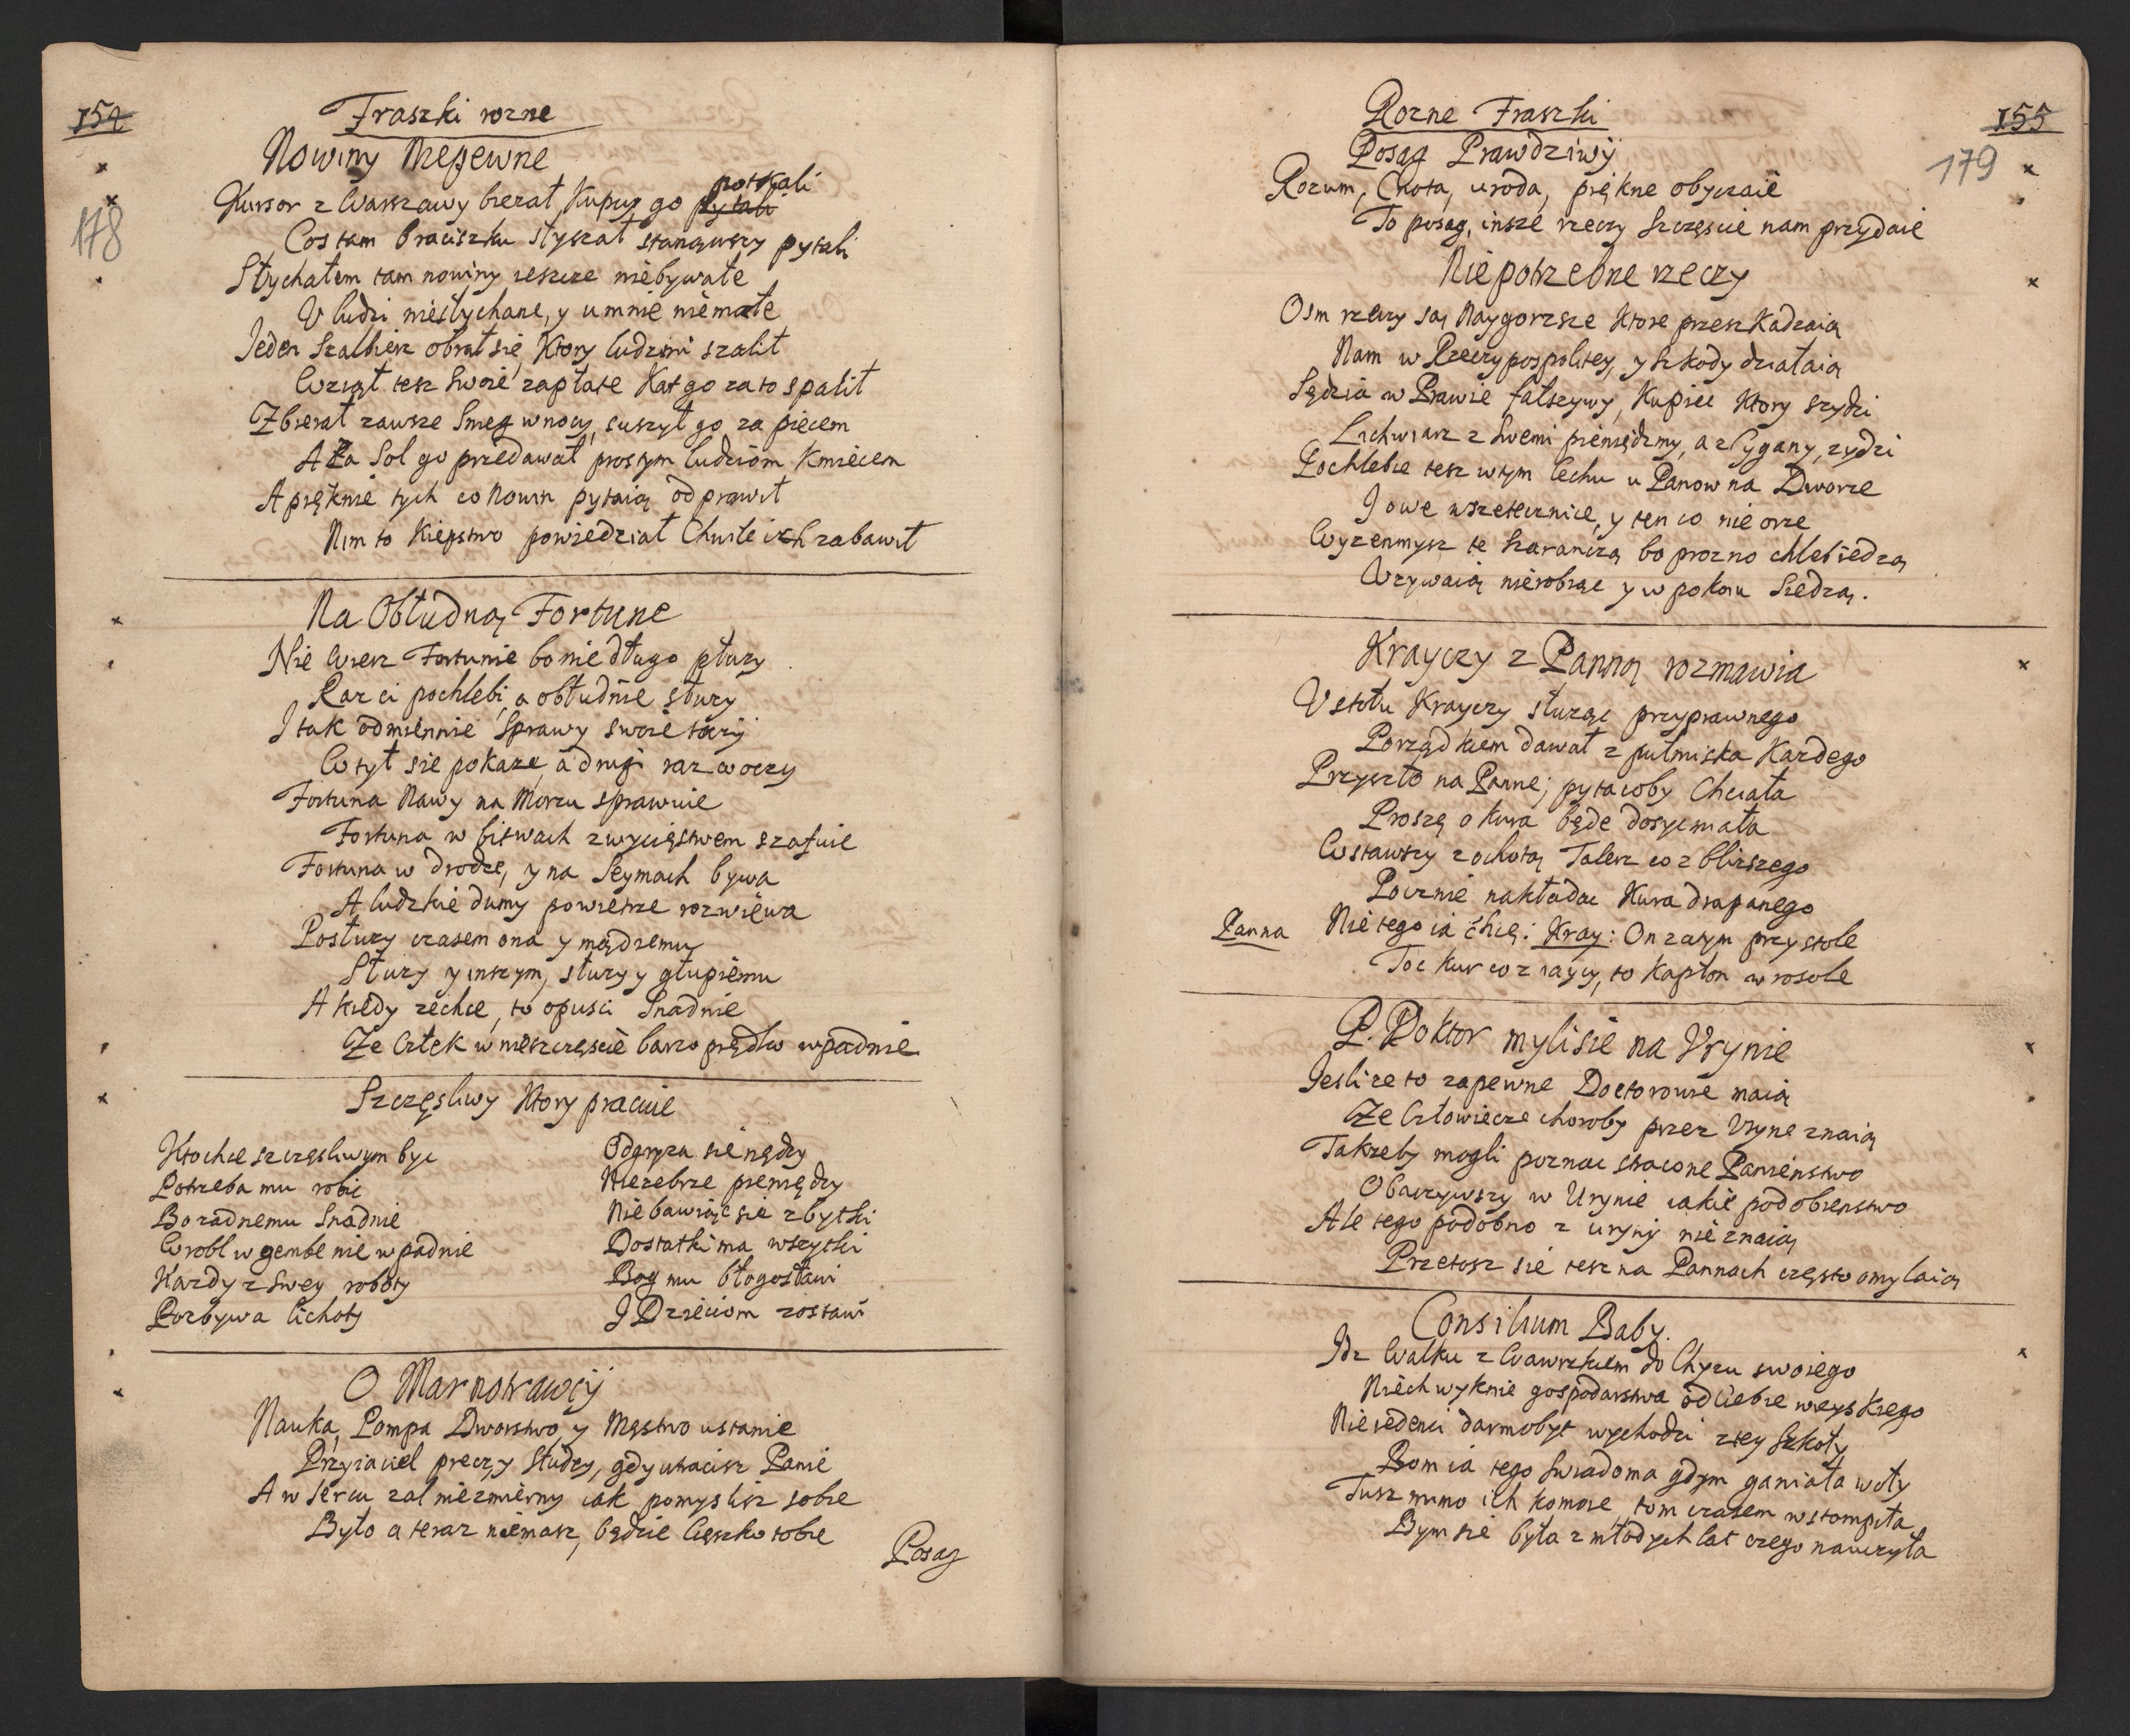 154
178
Fraszki rozne
Nowiny Niepewne
potkali
Kursor z Warszawy bieżał, Kupcy go pytali
Cos tam braciszku słyszał stanąwszy pytali
Słychałem tam nowiny ieszcze niebywałe
U ludzi niesłychane, y umnie niemałe
Jeden Szalbierz obrał się, Ktory ludzmi szalił
Wziął tesz Swoie zapłate Kat go za to spalił
Zbierał zawsze Snieg wnocy, suszył go za piecem
A Za Sol go przedawał prostym ludziom Kmieciem
A pięknie tych co Nowin pytaią odprawił
Nim to Kiepstwo powiedział Chwile ich zabawił
Na Obłudną Fortune
Nie wierz Fortunie bo nie długo płuzy
Raz ci pochlebi, a obłudnie słuzy
I tak odmiennie Sprawy swoie toczy
W tył sie pokaze, a drugi raz w oczy
Fortuna Nawy na Morzu sprawuie
Fortuna w bitwach zwycięstwem szafuie
Fortuna w drodze, y na Seymach bywa
A ludzkie dumy powietrze rozwiewa
Posłuzy czasem ona y mądremu
Słuzy y inszym, słuzy y głupiemu
A kiedy zechce, to opusci Snadnie
Ze Człek w nieszczęscie barzo prędko wpadnie
Szczęsliwy Ktory pracuie
Kto chce szczęsliwym byc
Potrzeba mu robic
Bo zadnemu Snadnie
Wrobl w gembe nie wpadnie
Kazdy z Swey roboty
Pozbywa lichoty
Odgryza sie nędzy
Niezebrze pieniędzy
Niebawiąc sie zbytki
Dostatki ma wszytki
Bog mu błogosławi
I Dzieciom zostawi
O Marnotrawcy
Nauka, Pompa Dworstwo, y Męstwo ustanie
Przyiaciel precz, y Słudzy, gdy utracisz Panie
A w Sercu zal niezmierny iak pomyslisz sobie
Było a teraz niemasz, będzie Cięszko tobie
Posag
155
179
Rozne Fraszki
Posag Prawdziwy
Rozum, Cnota, uroda, piękne obyczaie
To posag, insze rzeczy Szczęscie nam przydaie
Niepotrzebne rzeczy
Osm rzeczy są Naygorsze Ktore przeszkadzaią
Nam w Rzeczypospolitey, y Szkody działaią
Sędzia w Prawie fałszywy, Kupiec Ktory szydzi
Lichwiarz z Swemi pieniędzmy, a z Cygany, zydzi
Pochlebce tesz wtym Cechu u Panow na Dworze
I owe wszetecznice, y ten co nie orze
Wyzenmysz te Szarańczą bo prozno chleb iedzą
Uzywaią nierobiąc y w pokoiu Siedzą.
Krayczy z Panną rozmawia
U stołu Krayczy słuząc przyprawnego
Porządkiem dawał z pułmiska Kazdego
Przyszło na Panne; pyta coby Chciała
Proszę o Kura będe dosyc miała
Wstawszy z ochotą Talerz co z bliszego
Pocznie nakładac Kura drapanego
Panna Nie tego ia chcę: Kray: On zatym przy stole
Toc kur co z iaycy, to Kapłon w rosole
P. Doktor myli sie na Urynie
Jesli ze to zapewne Doctorowie maią
Ze Człowiecze choroby przez Uryne znaią
Takzeby mogli poznac stracone Panienstwo
Obaczywszy w Urynie iakie podobienstwo
Ale tego podobno z uryny nie znaią
Przetosz sie tesz na Pannach często omylaią
Consilium Baby.
Idz Walku z Wawrzkiem do Chyzu swoiego
Niech wyknie gospodarstwa od Ciebie wieyskiego
Nie ieden darmobyt wychodzi z tey Szkoły
Bom ia tego Swiadoma gdym ganiała woły
Tusz mimo ich komore, tom czasem wstompiła
Bym sie była z młodych lat czego nauczyła